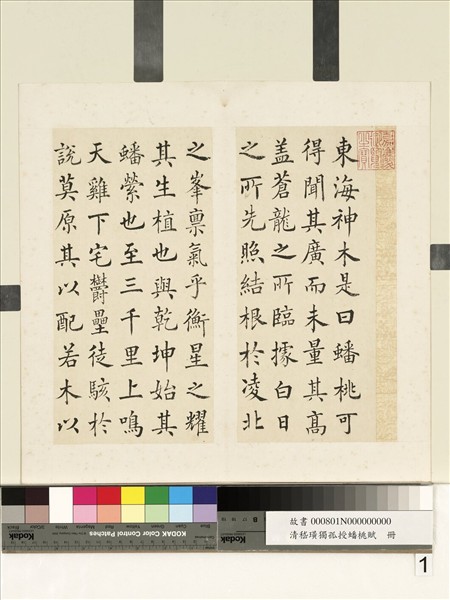 東海神木是曰蟠桃可
得聞其廣而未量其高
盖蒼龍之所臨據白日
之所先照結根於凌北
之峯禀氣乎衡星之耀
其生植也與乾坤始其
蟠縈也至三千里上鳴
天雞下宅鬱壘徒駭於
說莫原其以配若木以
KODAK Color Control Patches
Kodak
故書 000801N000000000
清嵇璜獨孤授蟠桃賦 冊
1